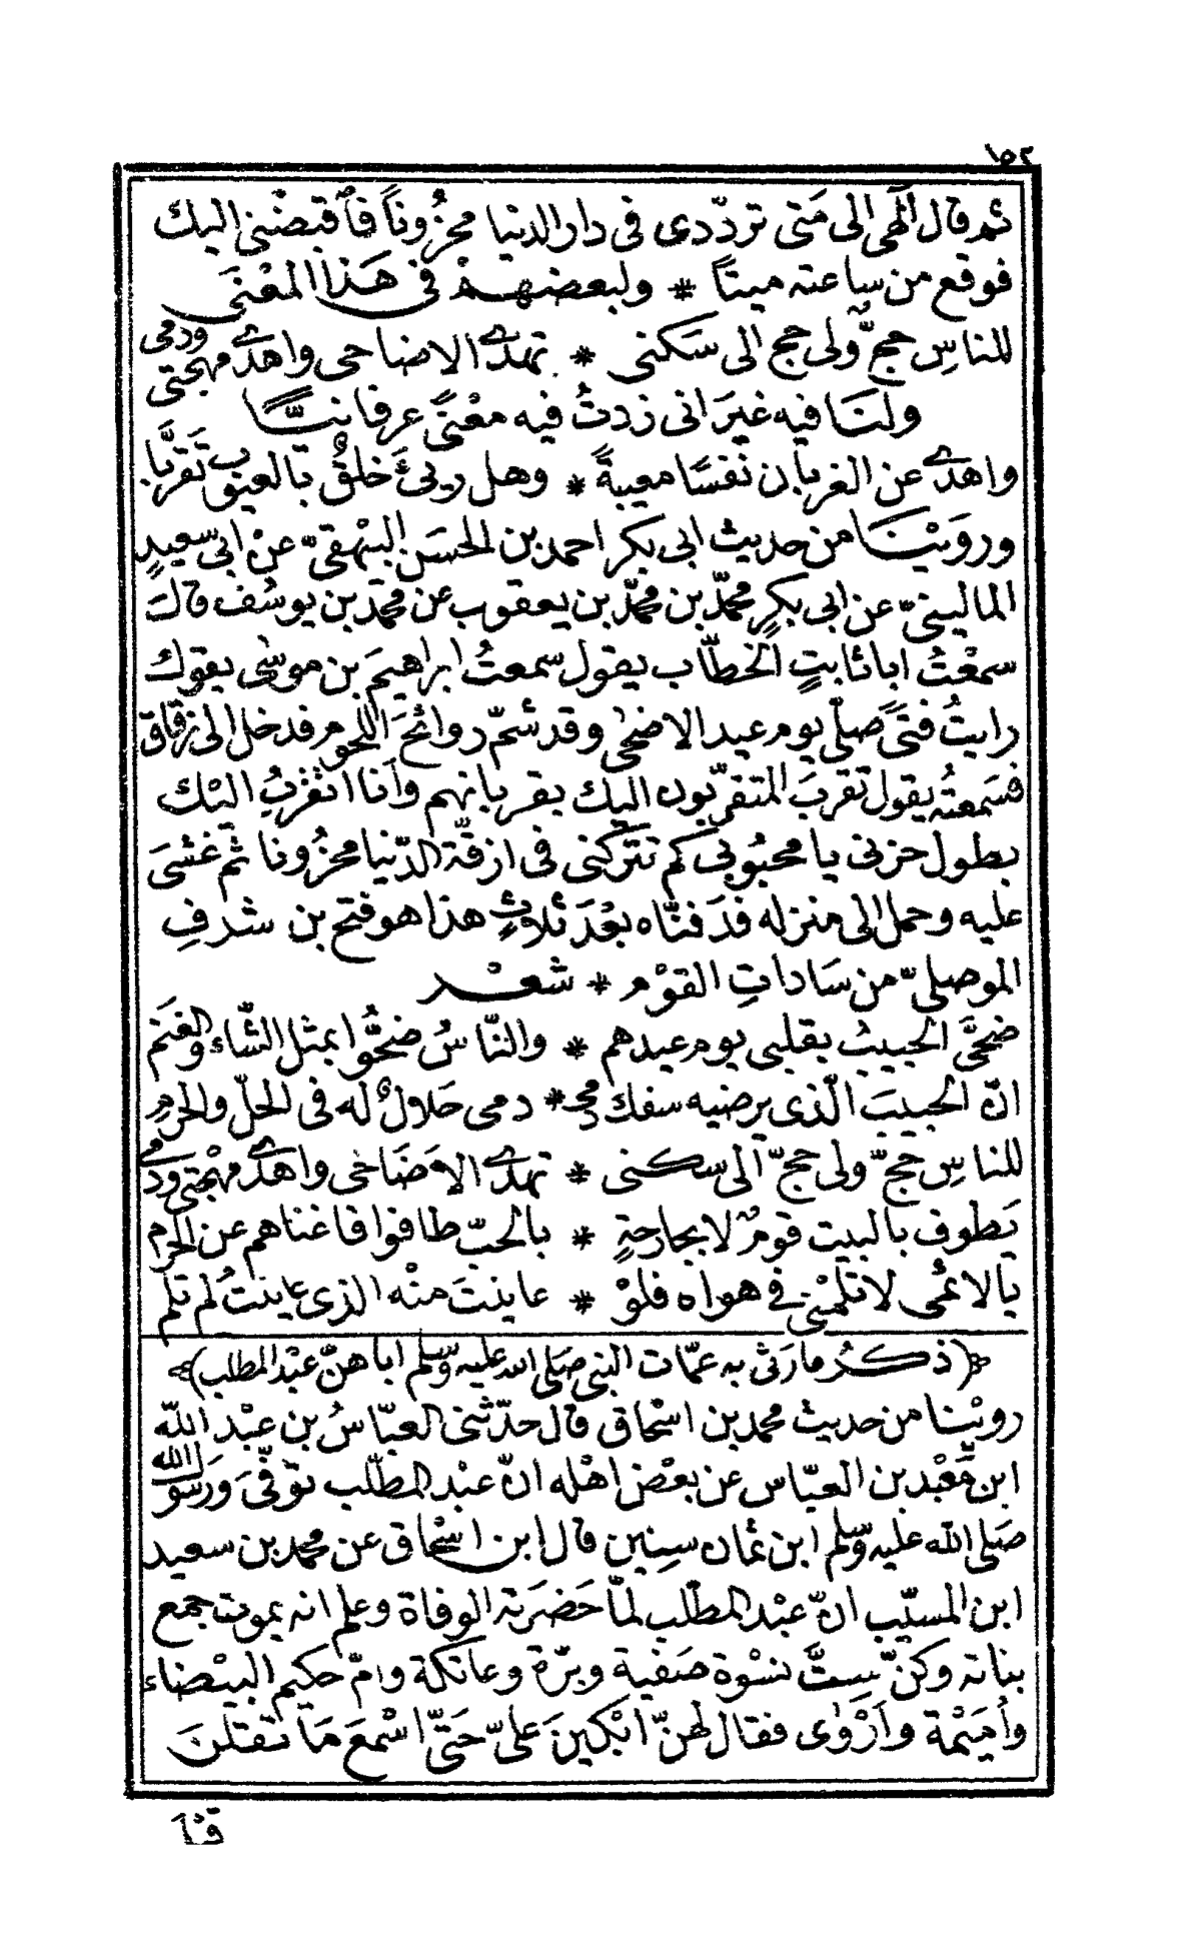 ١٥٢
ثم قال الٰهى الى مَتى تردّدى فى دار الدنيا محزُوناً فٱقبضْنى اليك
فوقع من ساعته ميتاً * ولبعضهمْ فى هَذا المعْنَى
للناسِ حجٌّ ولى حج الى سَكنى * تهدَى الاضاحى واهدى مهجتى ودمى
ولنَا فيه غيرَ انى زدتُ فيه معْنىً عرفانيًّا
واهدى عن القربان نفسًا معيبةً * وهل ريئَ خلقٌ بالعيوب تَقرَّبا
وروَيْنَا من حديث ابى بكر احمد بن الحسَن البيْهقىّ عنْ ابى سعيدٍ
المالينىّ عن ابى بكرٍ محمّد بن محمّد بن يعقوب عن محمد بن يوسُف قال
سمعْتُ ابا ثابتٍ الخطّاب يقول سمعتُ ابراهيمَ بن موسٰى يقول
رايتُ فتىً صلّى يوم عيد الاضحٰى وقد شمّ روائحَ اللحوم فدخل الى زقاق
فسَمعتُه يقول تقربَ المتقرّبون اليك بقربانهم وأنا اتقرّبُ اليْك
بطول حزنى يا محبُوبى كم تتركنى فى ازقّة الدّنيا محزُونا ثم غشىَ
عليه وحمل الى منزله فدَفنّاه بعْدَ ثلاثٍ هذا هو فتح بن شدرفِ
الموصلىّ من سَاداتِ القوْم * شعْر
ضحَّى الحبيبُ بقلبى يوم عيدهم * والنّاسُ ضحُّوا بمثل الشّاء والغنَم
انّ الحبيبَ الّذى يرضيه سفك دمى * دمى حَلالٌ له فى الحلّ والحرمِ
للناسِ حجّ ولى حجّ الى سكنى * تهدَى الاضَاحى واهدى مهْجتى ودَمى
يَطوف بالبيت قومٌ لا بجارحةٍ * بالحبّ طافوا فاغناهم عن الحرم
يا لائمى لا تلمْنى فى هواه فلوْ * عاينتَ منْه الذى عاينتُ لم تلم
﴿(ذكرُ مارَثى به عمّات النبى صَلى الله عليه وسّلم اباهنّ عبْد المطلب)﴾
رويْنا من حديث محمد بن اسْحاق قال حدّثنى العبّاسُ بن عبْد اللّه
ابن مَعْبد بن العبّاس عن بعْض اهْله انّ عبْد المطّلب توفّى وَرَسول الله
صَلى الله عليه وسّلم ابن ثمان سِنين قال ابن اسْحاق عن محمد بن سعيد
ابن المسيّب انّ عبْد المطّلب لمّا حَضرَته الوفاة وعلم انه يموت جمع
بناته وكنّ ستّ نسْوة صَفية وبرّة وعاتكة وامّ حكيم البيْضاء
وأميْمة وأرْوٰى فقال لهنّ ابْكينَ علىّ حَتّى اسْمعَ مَا تقلنَ
قبْلَ